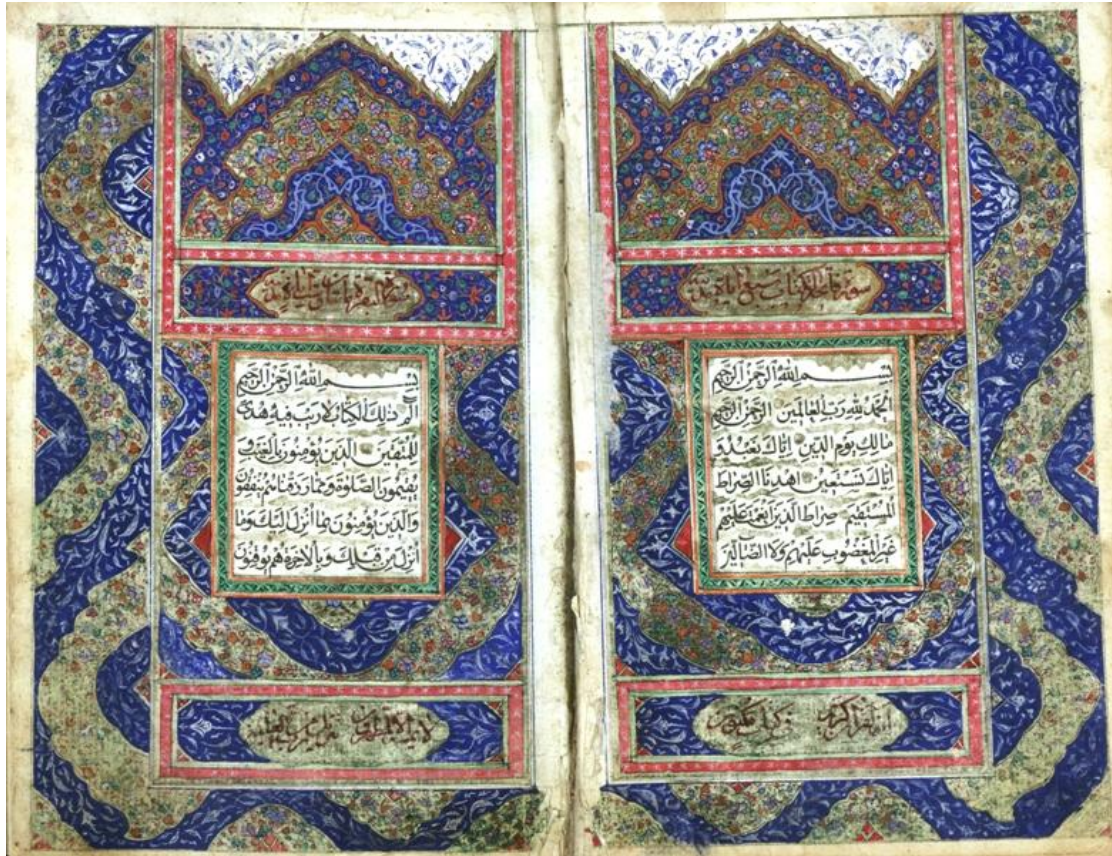 سورة فاتحة الكتاب سبع آيات
بسم الله الرحمن الرحيم
الحمد لله رب العالمين الرحمن الرحيم
مالك يوم الدين اياك نعبد و
اياك نستعين اهدنا الصراط
المستقيم صراط الذين انعمت عليهم
غير المغضوب عليهم ولا الضالين
انه لقرآن كريم في كتاب مكنون
بسم الله الرحمن الرحيم
الم ذلك الكتاب لا ريب فيه هدى
للمتقين الذين يؤمنون بالغيب و
يقيمون الصلوة ومما رزقناهم ينفقون
والذين يؤمنون بما انزل اليك وما
انزل من قبلك وبالاخرة هم يوقنون
لا يمسه الا المطهرون تنزيل من رب العالمين